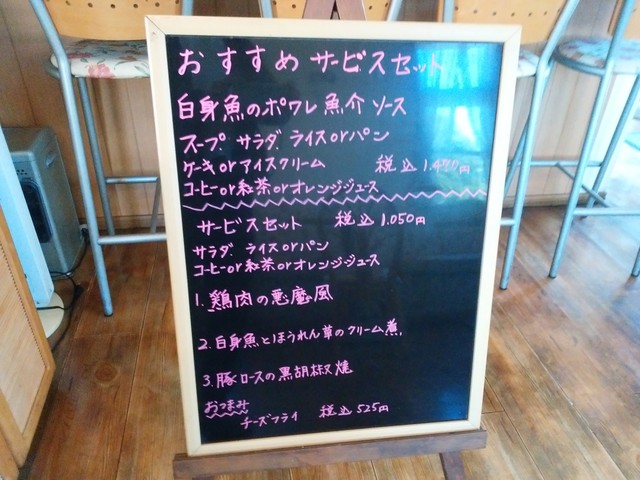 おすすめ サービスセット
白身魚のポワレ 魚介 ソース
スープ サラダ ライスorパン
ケーキorアイスクリーム 税込1.470円
コーヒーor紅茶orオレンジジュース
サービスセット 税込1.050円
サラダ ライスorパン
コーヒーor紅茶orオレンジジュース
1. 鶏肉の悪魔風
2. 白身魚とほうれん草のクリーム煮
3. 豚ロースの黒胡椒焼
おつまみ
チーズフライ 税込525円